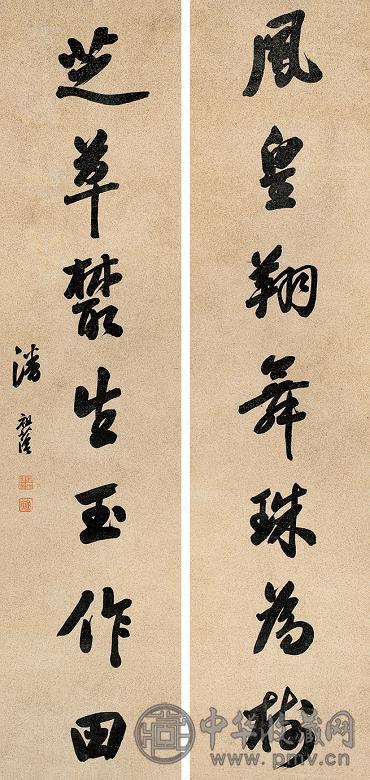 鳳皇翔舞珠為樹
芝草叢生玉作田
潘祖蔭
中华收藏网
www.pmv.cn